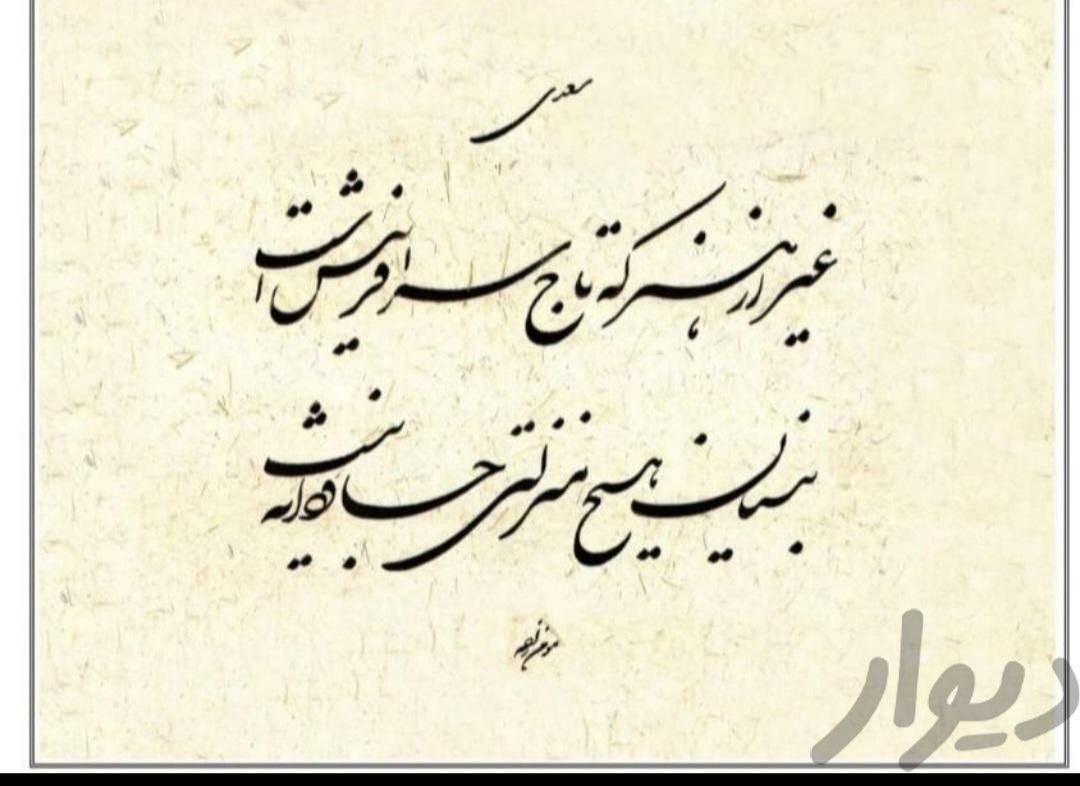 سعدی
غیر از هنر که تاج سر آفرینش است
بنیان هیچ منزلتی جاودانه نیست
دیوار